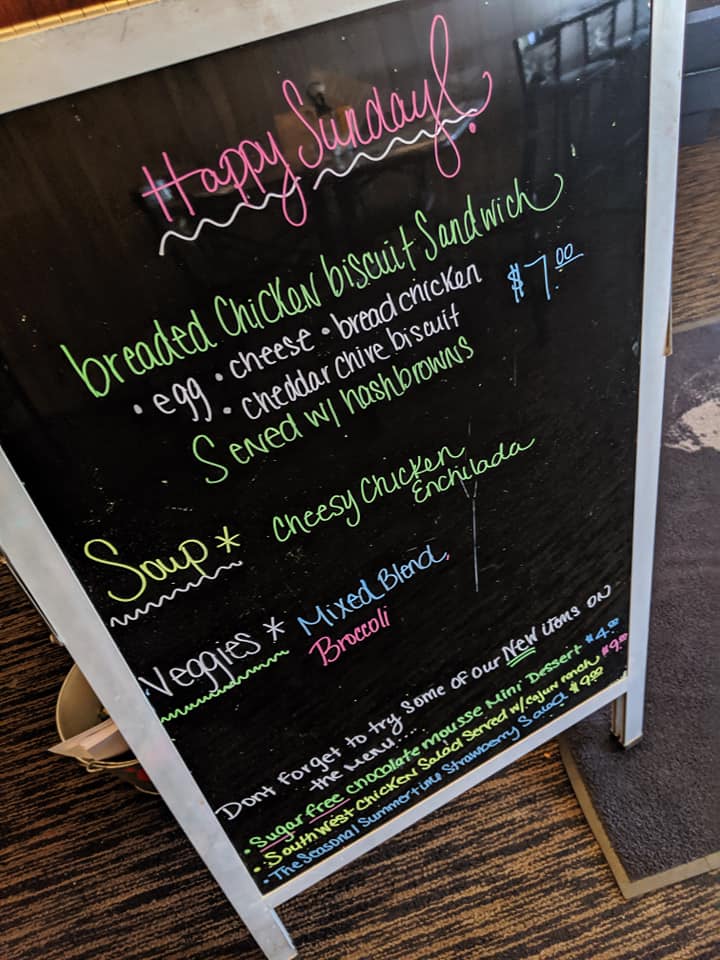 Happy Sunday!
breaded Chicken biscuit Sandwich
• egg • cheese • bread chicken $7.00
• cheddar chive biscuit
Served w/ hashbrowns
Soup* Cheesy Chicken
Enchilada
Veggies* Mixed Blend,
Broccoli
Dont forget to try some of our New items on
the menu....
• Sugar free chocolate mousse Mini Dessert $4.00
• South West Chicken Salad Served w/ cajun ranch $9.00
• The Seasonal Summertime Strawberry Salad $9.00